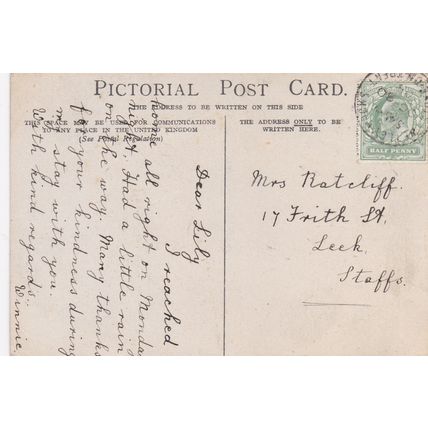 PICTORIAL POST CARD.
THE ADDRESS TO BE WRITTEN ON THIS SIDE
THIS SPACE MAY BE USED FOR COMMUNICATIONS
TO ANY PLACE IN THE UNITED KINGDOM
(See Postal Regulation)
THE ADDRESS ONLY TO BE
WRITTEN HERE.
HALF PENNY
Dear Lily
I reached
home all right on Monday
night. Had a little rain
on the way. Many thanks
for your kindness during
my stay with you.
With kind regards.
Winnie.
Mrs Ratcliff.
17 Frith St.
Leek.
Staffs.